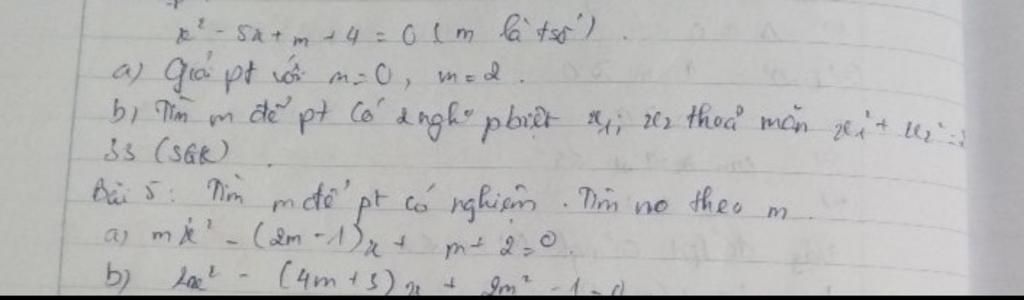 x² - 5x + m + 4 = 0 ( m là tsố ) .
a) Giải pt với m = 0 , m = 2 .
b) Tìm m để pt có 2 ngh° pbiệt x₁; x₂ thoả mãn x₁² + x₂² =
(SGK) .
Bài 5 : Tìm m để pt có nghiệm . Tìm no theo m .
a) mx² - (2m - 1)x + m + 2 = 0
b) 2x² - (4m + 3)x + 2m² - 1 = 0